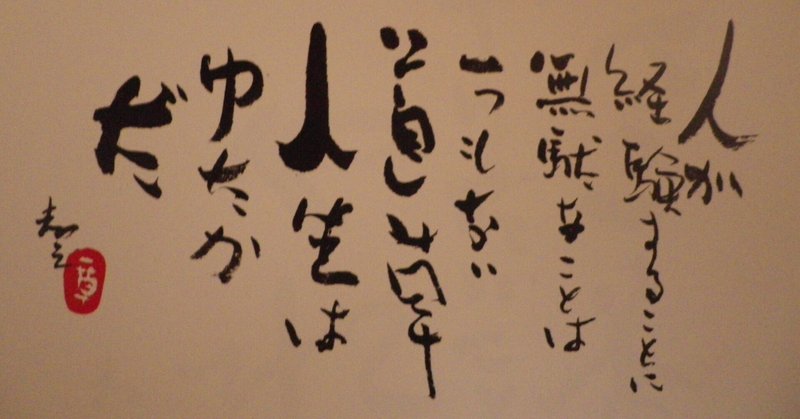 人が
経験することに
無駄なことは
一つもない
と
人生は
ゆたか
だ